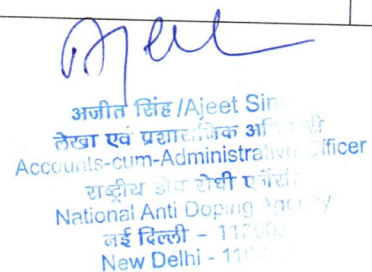 अजीत सिंह /Ajeet Sin
लेखा एवं प्रशासनिक
Accounts-cum-Administrative Officer
राष्ट्रीय डोप रोधी एजेंसी
National Anti Doping Agency
नई दिल्ली -
New Delhi -